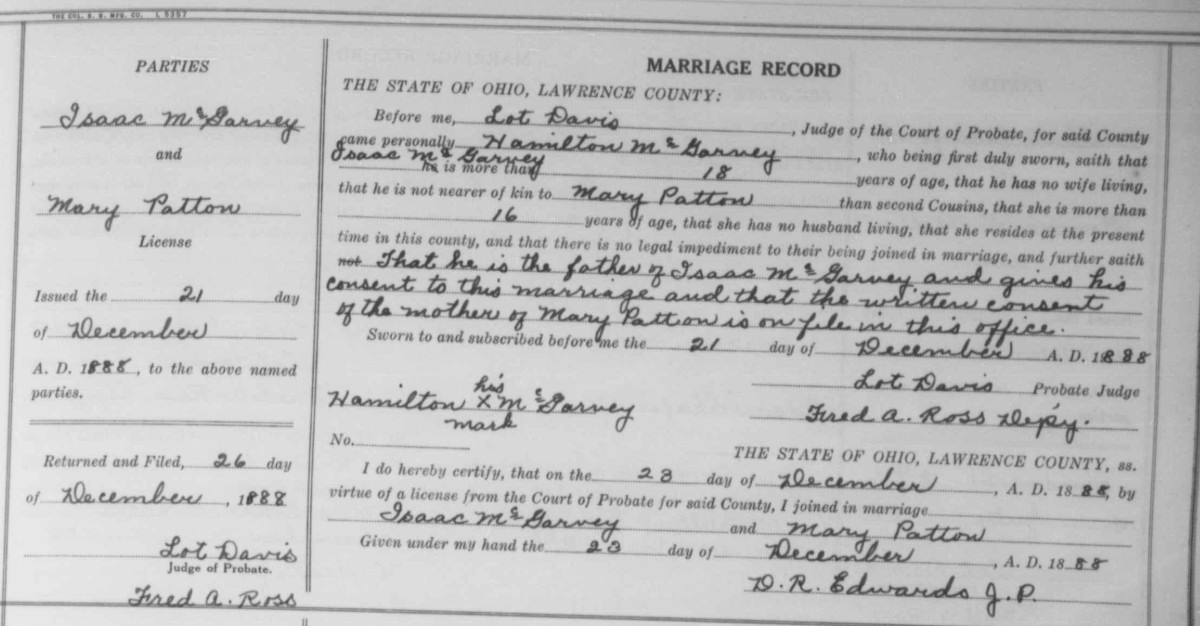 THE COL. B. B. MFG. CO. L 5397
PARTIES
Isaac McGarvey
and
Mary Patton
License
Issued the 21 day
of December
A. D. 1888, to the above named
parties.
Returned and Filed, 26 day
of December, 1888
Lot Davis
Judge of Probate.
Fred A. Ross
MARRIAGE RECORD
THE STATE OF OHIO, LAWRENCE COUNTY:
Before me, Lot Davis, Judge of the Court of Probate, for said County
came personally Hamilton McGarvey, who being first duly sworn, saith that
Isaac McGarvey
he is more than 18 years of age, that he has no wife living,
that he is not nearer of kin to Mary Patton than second Cousins, that she is more than
16 years of age, that she has no husband living, that she resides at the present
time in this county, and that there is no legal impediment to their being joined in marriage, and further saith
not. That he is the father of Isaac McGarvey and gives his
consent to this marriage and that the written consent
of the mother of Mary Patton is on file in this office.
Sworn to and subscribed before me the 21 day of December A. D. 1888
Lot Davis Probate Judge
his
Hamilton X McGarvey
mark
Fred A. Ross Depy.
No.
THE STATE OF OHIO, LAWRENCE COUNTY, ss.
I do hereby certify, that on the 23 day of December, A. D. 1888, by
virtue of a license from the Court of Probate for said County, I joined in marriage
Isaac McGarvey and Mary Patton
Given under my hand the 23 day of December, A. D. 1888
D. R. Edwards J.P.